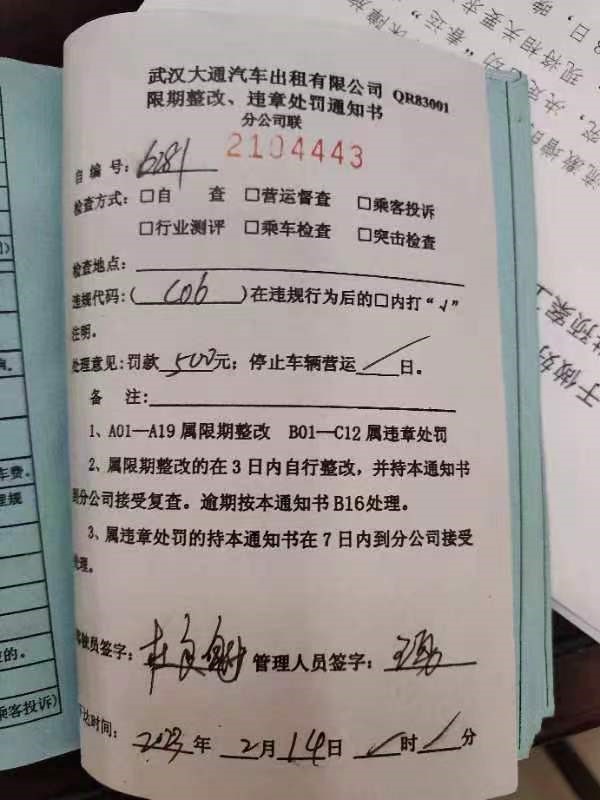 武汉大通汽车出租有限公司
限期整改、违章处罚通知书 QR83001
分公司联
2104443
自编号: 6281
检查方式: □自 查 □营运督查 □乘客投诉
□行业测评 □乘车检查 □突击检查
检查地点:
违规代码:( C06 )在违规行为后的□内打“√”
注明。
处理意见:罚款 500 元; 停止车辆营运 / 日。
备 注:
1、A01—A19 属限期整改 B01—C12 属违章处罚
2、属限期整改的在 3 日内自行整改,并持本通知书
到分公司接受复查。逾期按本通知书 B16处理。
3、属违章处罚的持本通知书在 7 日内到分公司接受
处理。
驾驶员签字: 管理人员签字:
下达时间: 2023 年 2 月 14 日 / 时 / 分
车费。
乘客投诉)